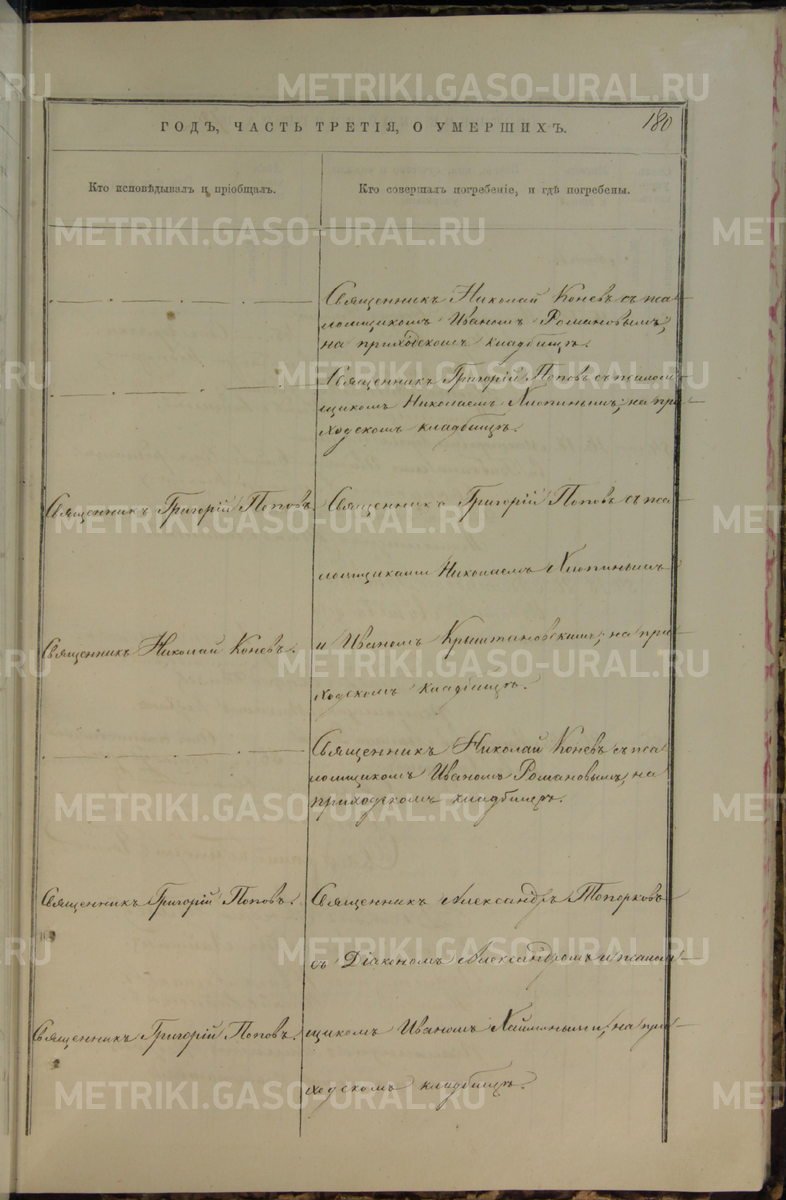 180
ГОДЪ, ЧАСТЬ ТРЕТІЯ, О УМЕРШИХЪ.
Кто исповѣдывалъ и пріобщалъ.
Кто совершалъ погребеніе, и гдѣ погребены.
Священникъ Николай Коневъ съ пса-
ломщикомъ Иваномъ Романовымъ,
на приходскомъ кладбищѣ.
Священникъ Григорій Поповъ съ псалом-
щикомъ Николаемъ Хлопинымъ, на при-
ходскомъ кладбищѣ.
Священникъ Григорій Поповъ.
Священникъ Григорій Поповъ съ пса-
ломщиками Николаемъ Хлопинымъ
Священникъ Николай Коневъ.
и Иваномъ Крыштановскимъ, на при-
ходскомъ кладбищѣ.
Священникъ Николай Коневъ съ пса-
ломщикомъ Иваномъ Романовымъ, на
приходскомъ кладбищѣ.
Священникъ Григорій Поповъ.
Священникъ Александръ Топорковъ
съ Діакономъ Александромъ и псалом-
Священникъ Григорій Поповъ.
щикомъ Иваномъ на при-
ходскомъ кладбищѣ.
METRIKI.GASO-URAL.RU